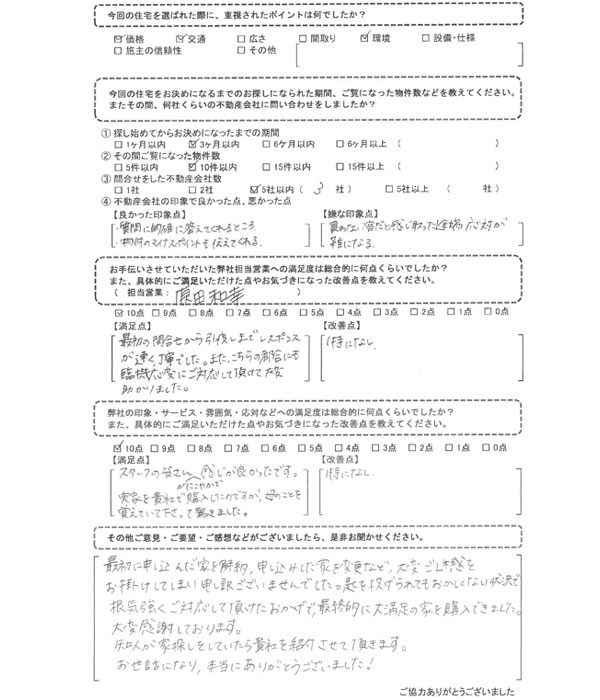 今回の住宅を選ばれた際に、重視されたポイントは何でしたか？
☑ 価格 ☑ 交通 □ 広さ □ 間取り ☑ 環境 □ 設備・仕様
□ 施主の信頼性 □ その他
今回の住宅をお決めになるまでのお探しになられた期間、ご覧になった物件数などを教えてください。
またその間、何社くらいの不動産会社に問い合わせをしましたか？
① 探し始めてからお決めになったまでの期間
□ 1ヶ月以内 ☑ 3ヶ月以内 □ 6ケ月以内 □ 6ケ月以上 ( )
② その間ご覧になった物件数
□ 5件以内 ☑ 10件以内 □ 15件以内 □ 15件以上 ( )
③ 問合せをした不動産会社数
□ 1社 □ 2社 ☑ 5社以内 ( 3 社 ) □ 5社以上 ( 社 )
④ 不動産会社の印象で良かった点、悪かった点
【良かった印象点】 【嫌な印象点】
・質問に的確に答えてくれるところ 買わない客だと感じ取った途端、応対が
・物件のマイナスポイントも伝えてくれる。 雑になる
お手伝いさせていただいた弊社担当営業への満足度は総合的に何点くらいでしたか？
また、具体的にご満足いただけた点やお気づきになった改善点を教えてください。
( 担当営業： 原田和幸 )
☑ 10点 □ 9点 □ 8点 □ 7点 □ 6点 □ 5点 □ 4点 □ 3点 □ 2点 □ 1点 □ 0点
【満足点】 【改善点】
最初の問合せから引渡しまでレスポンス 特になし
が速く、丁寧でした。また、こちらの都合にも
臨機応変にご対応して頂けて大変
助かりました。
弊社の印象・サービス・雰囲気・応対などへの満足度は総合的に何点くらいでしたか？
また、具体的にご満足いただけた点やお気づきになった改善点を教えてください。
☑ 10点 □ 9点 □ 8点 □ 7点 □ 6点 □ 5点 □ 4点 □ 3点 □ 2点 □ 1点 □ 0点
【満足点】 【改善点】
スタッフの皆さんがにこやかで感じが良かったです。 特になし
実家を貴社で購入したのですが、母のことを
覚えていて下さって驚きました。
その他ご意見・ご要望・ご感想などがございましたら、是非お聞かせください。
最初に申し込んだ家を解約、申し込みした家を変更など、大変ご迷惑を
お掛けしてしまい申し訳ございませんでした。匙を投げられてもおかしくない状況で
根気強くご対応して頂けたおかげで、最終的に大満足の家を購入できました。
大変感謝しております。
知人が家探しをしていたら貴社を紹介させて頂きます。
お世話になり、本当にありがとうございました！
ご協力ありがとうございました